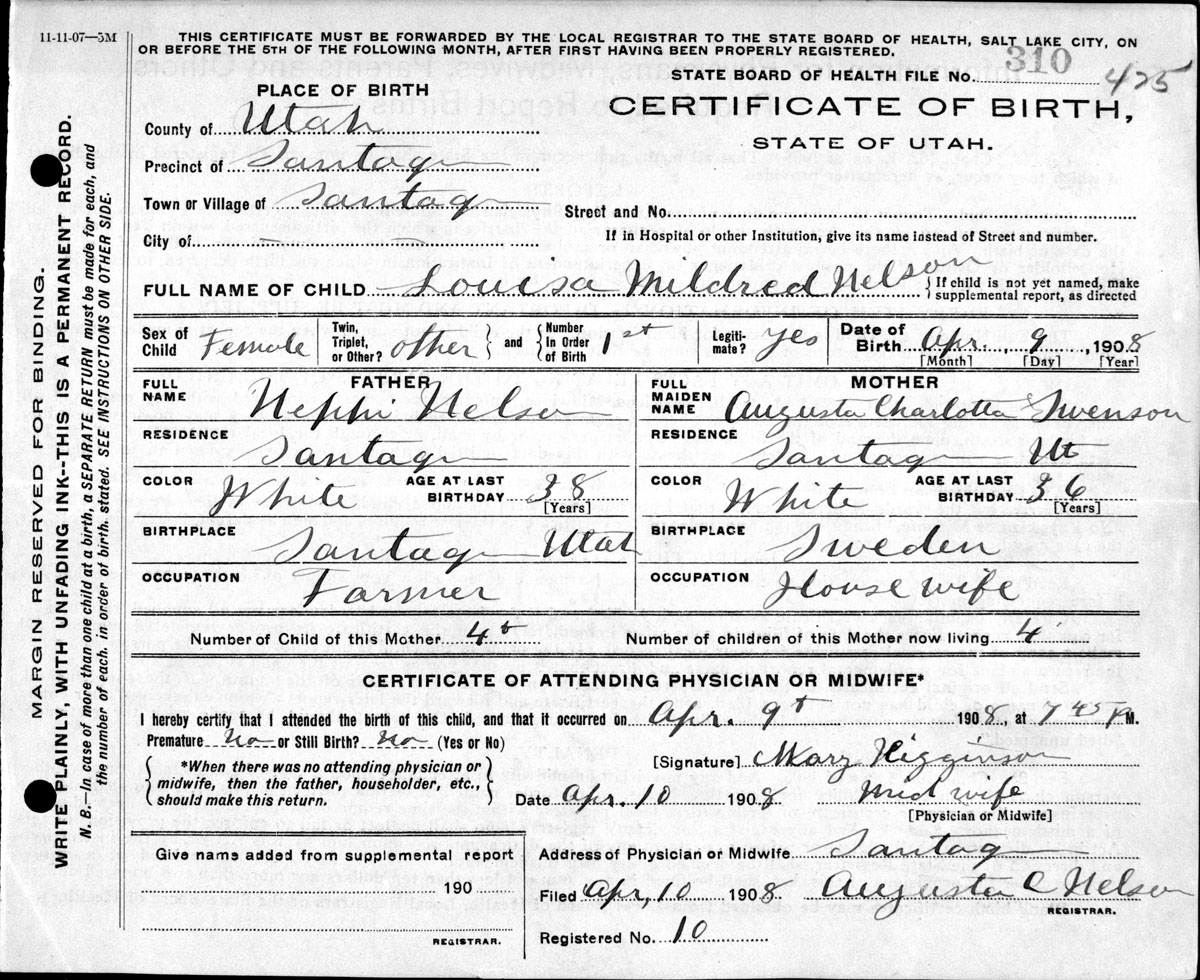 11-11-07—5M
THIS CERTIFICATE MUST BE FORWARDED BY THE LOCAL REGISTRAR TO THE STATE BOARD OF HEALTH, SALT LAKE CITY, ON
OR BEFORE THE 5TH OF THE FOLLOWING MONTH, AFTER FIRST HAVING BEEN PROPERLY REGISTERED.
STATE BOARD OF HEALTH FILE No. 310 425
PLACE OF BIRTH
CERTIFICATE OF BIRTH,
STATE OF UTAH.
County of Utah
Precinct of Santaq
Town or Village of Santaq
Street and No.
City of — —
If in Hospital or other Institution, give its name instead of Street and number.
FULL NAME OF CHILD Louisa Mildred Nelson { If child is not yet named, make
supplemental report, as directed
Sex of Child Female Twin, Triplet, or Other? other } and { Number In Order of Birth 1st Legiti- mate? yes Date of Birth Apr. 9, 1908
[Month] [Day] [Year]
FATHER
FULL NAME Nephi Nelson
RESIDENCE Santaq
COLOR White AGE AT LAST BIRTHDAY 38
[Years]
BIRTHPLACE Santaq Utah
OCCUPATION Farmer
MOTHER
FULL MAIDEN NAME Augusta Charlotta Swenson
RESIDENCE Santaq Ut
COLOR White AGE AT LAST BIRTHDAY 36
[Years]
BIRTHPLACE Sweden
OCCUPATION House wife
Number of Child of this Mother 4t Number of children of this Mother now living 4
CERTIFICATE OF ATTENDING PHYSICIAN OR MIDWIFE*
I hereby certify that I attended the birth of this child, and that it occurred on Apr. 9t 1908, at 7 45 P M.
Premature No or Still Birth? No (Yes or No)
{ *When there was no attending physician or
midwife, then the father, householder, etc.,
should make this return. }
[Signature] Mary Higginson
Date Apr. 10 1908 Mid wife
[Physician or Midwife]
Give name added from supplemental report
190
REGISTRAR.
Address of Physician or Midwife Santaq
Filed Apr, 10 1908 Augusta C Nelson
REGISTRAR.
Registered No. 10
MARGIN RESERVED FOR BINDING.
WRITE PLAINLY, WITH UNFADING INK--THIS IS A PERMANENT RECORD.
N. B.—In case of more than one child at a birth, a SEPARATE RETURN must be made for each, and
the number of each, in order of birth, stated. SEE INSTRUCTIONS ON OTHER SIDE.